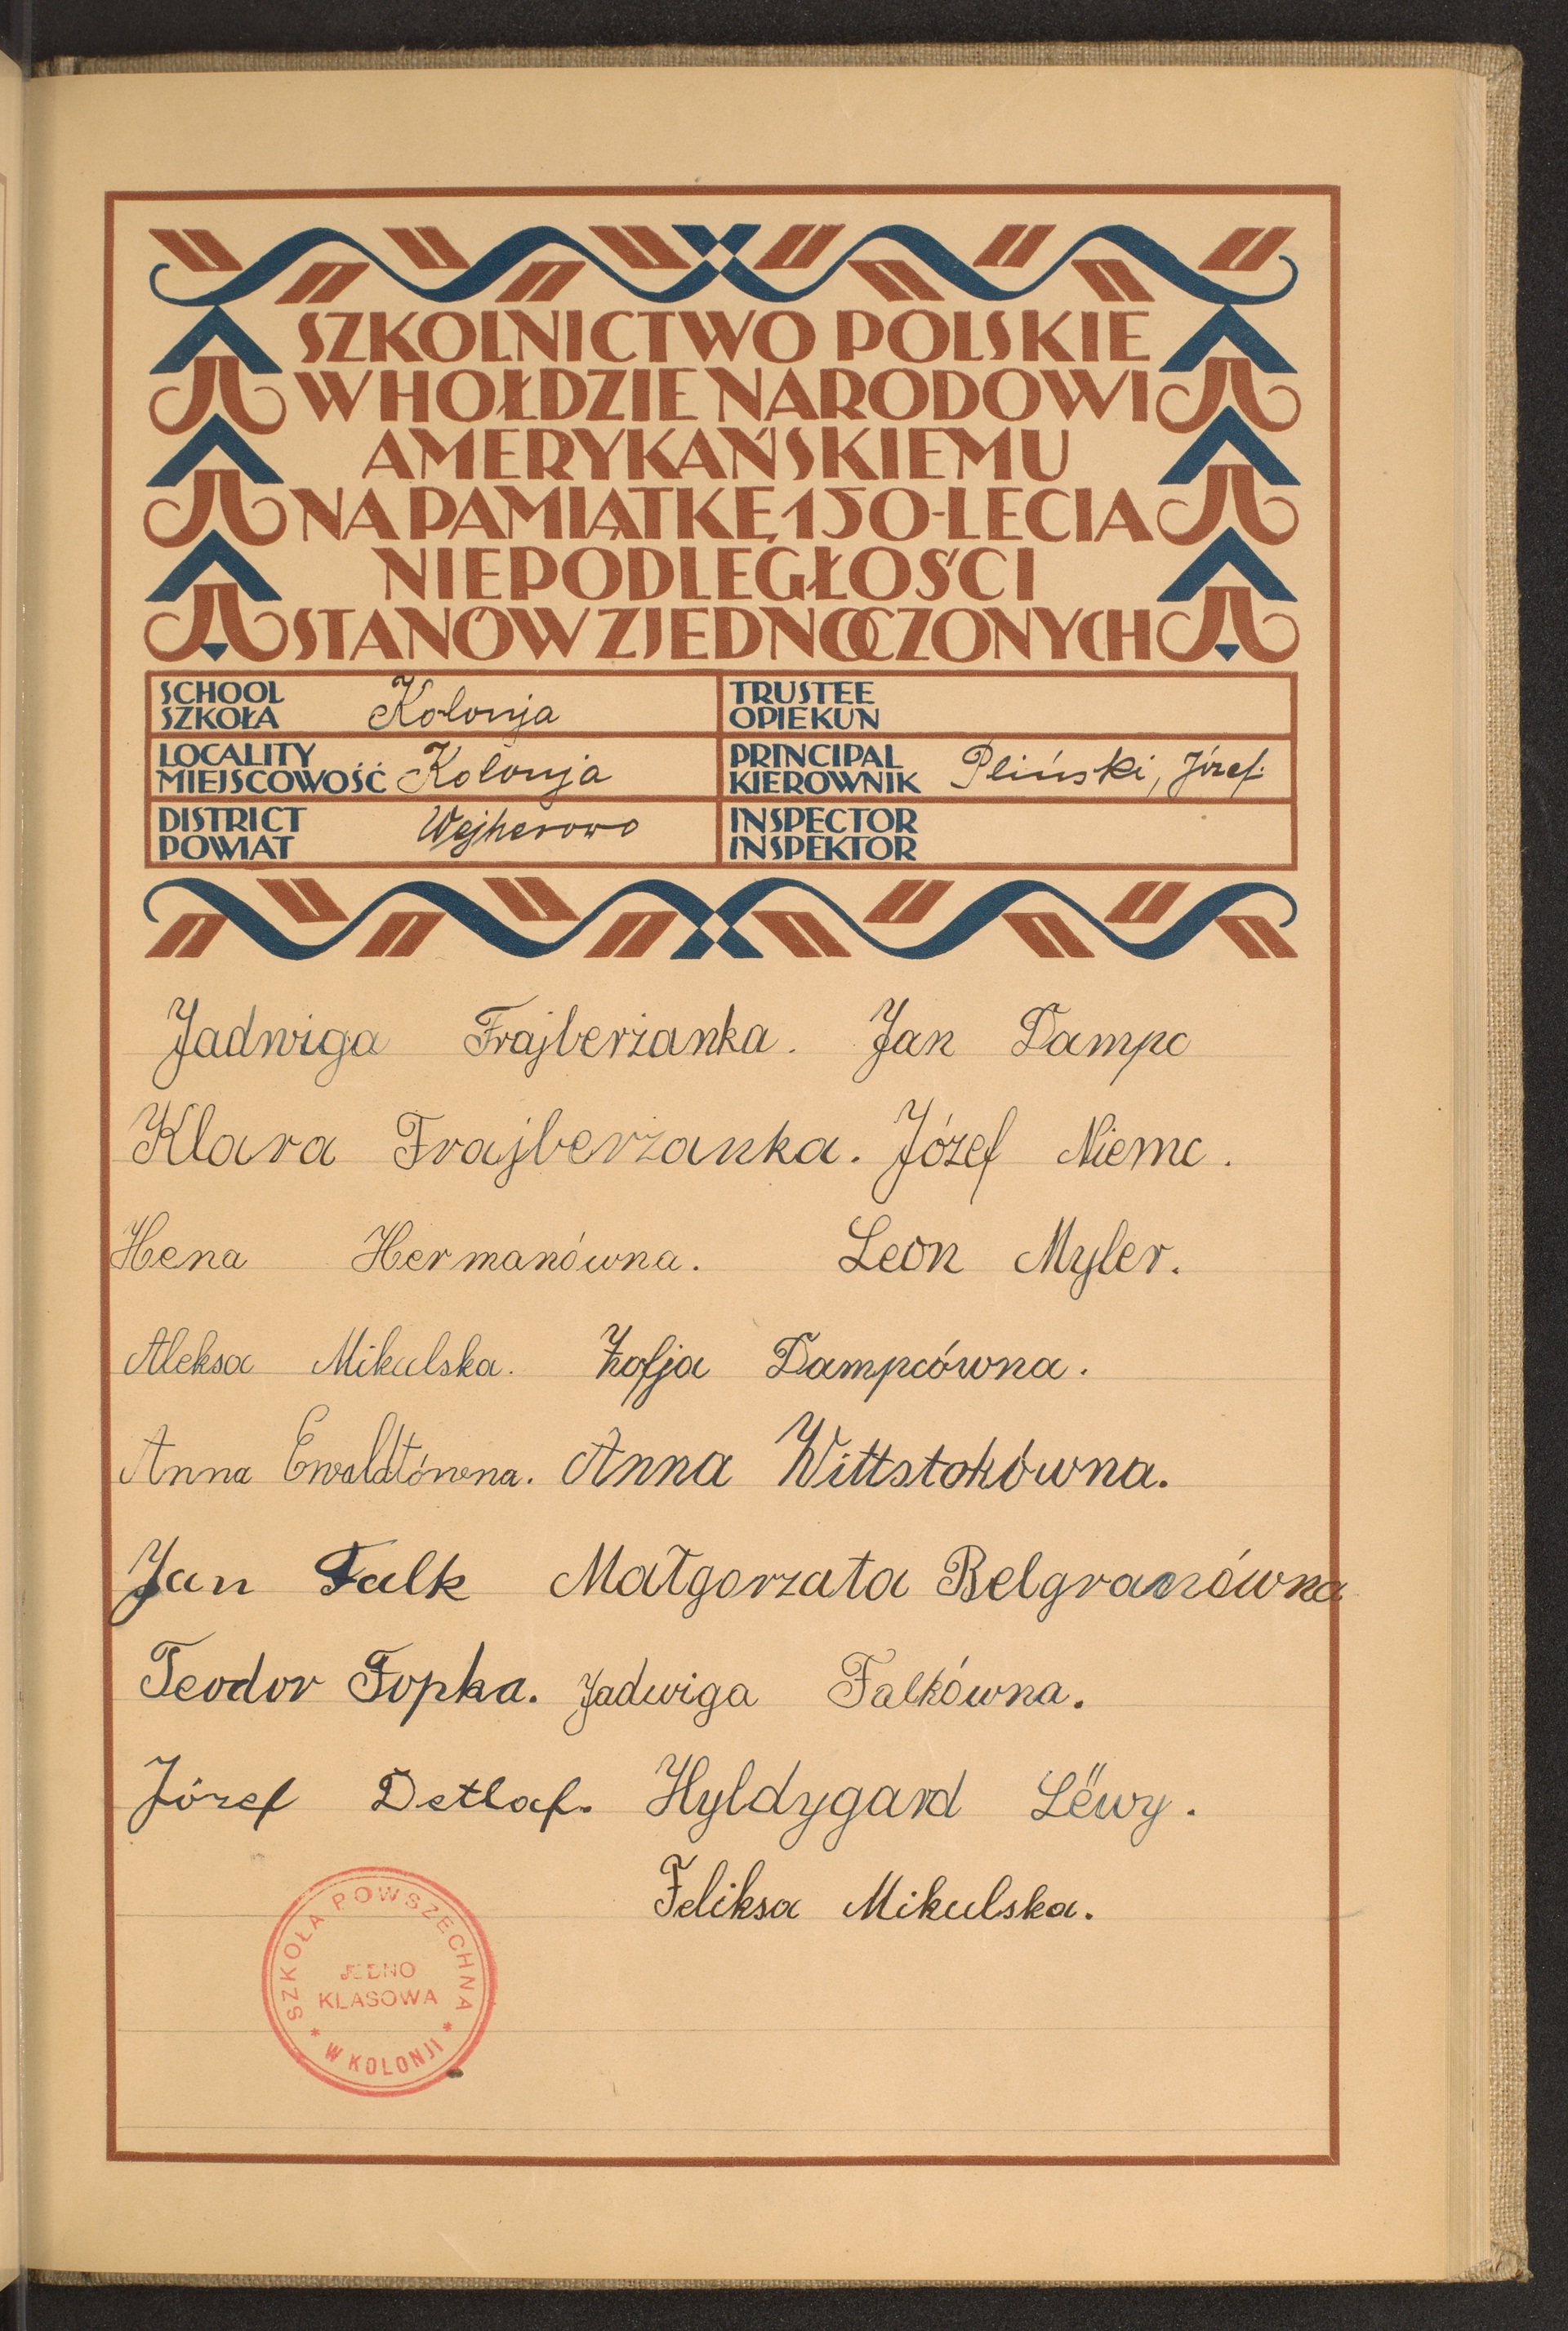 SZKOLNICTWO POLSKIE
W HOŁDZIE NARODOWI
AMERYKAŃSKIEMU
NA PAMIĄTKĘ 150-LECIA
NIEPODLEGŁOŚCI
STANÓW ZJEDNOCZONYCH
SCHOOL
SZKOŁA Kolonja
TRUSTEE
OPIEKUN
LOCALITY
MIEJSCOWOŚĆ Kolonja
PRINCIPAL
KIEROWNIK Pliński, Józef.
DISTRICT
POWIAT Wejherowo
INSPECTOR
INSPEKTOR
Jadwiga Frajberżanka. Jan Dampc
Klara Frajberżanka. Józef Niemc.
Hena Hermanówna. Leon Myler.
Aleksa Mikulska. Zofja Dampcówna.
Anna Ewaldtówna. Anna Wittstokówna.
Jan Falk Małgorzata Belgranówna
Teodor Fopka. Jadwiga Falkówna.
Józef Detlaf. Hyldygard Lëwy.
Feliksa Mikulska.
SZKOŁA POWSZECHNA
JEDNO
KLASOWA
* W KOLONJI *